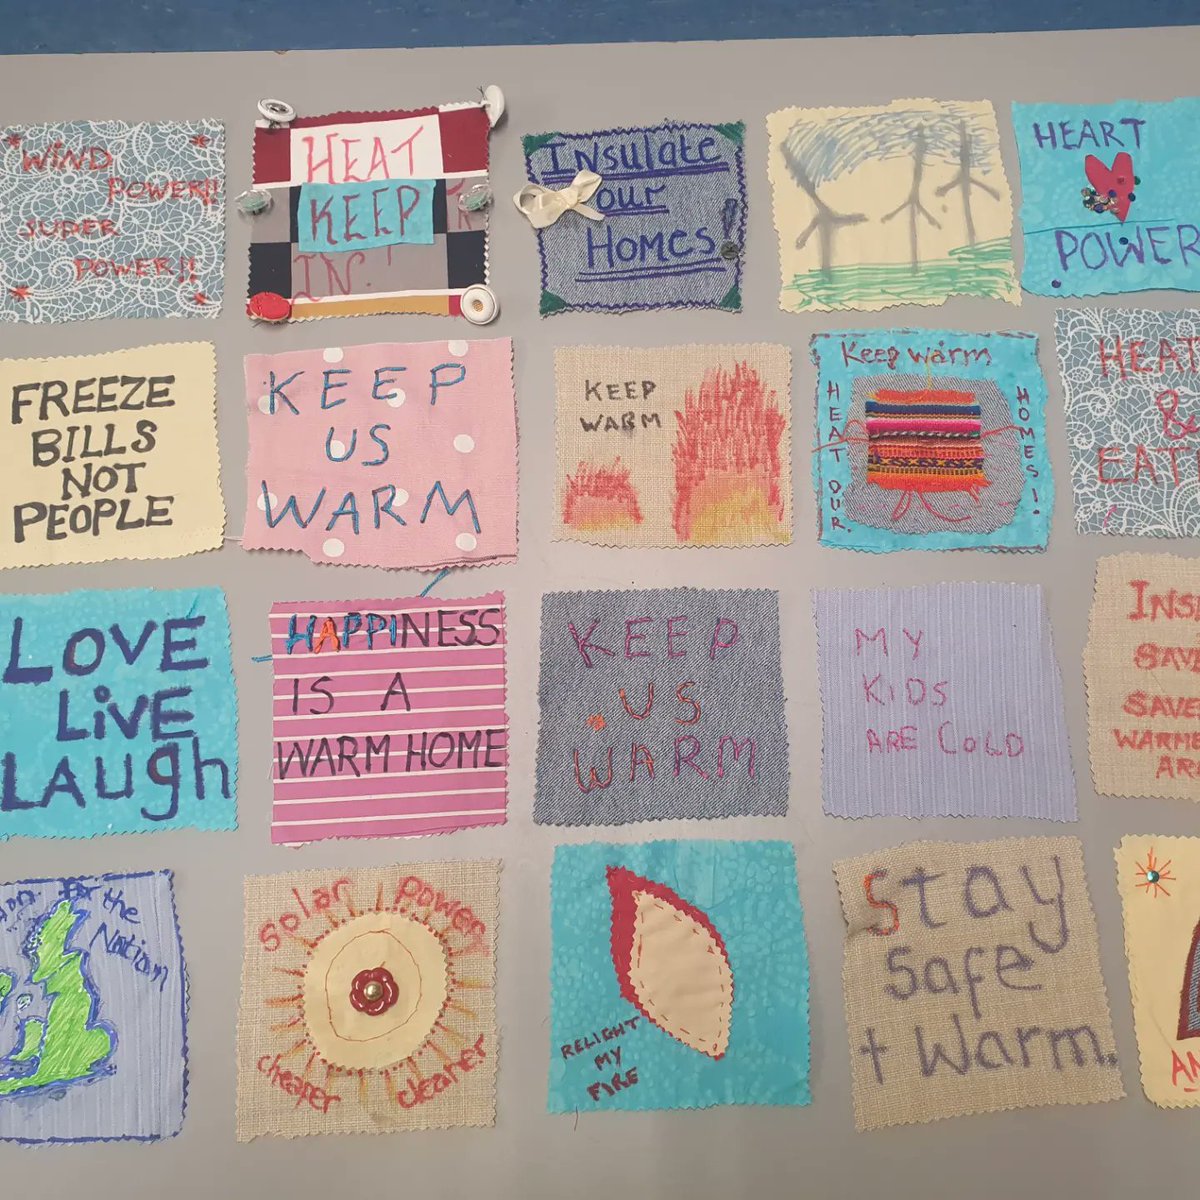 WIND
POWER!!
SUPER
POWER!!
HEAT
KEEP
IN!
INSulatE
our
HOMES!
HEART
POWER
FREEZE
BILLS
NOT
PEOPLE
KEEP
US
WARM
KEEP
WARM
Keep warm
HEAT OUR
HOMES!
HEAT
&
EAT
LOVE
LiVE
LAugh
HAPPINESS
IS A
WARM HOME
KEEP
US
WARM
MY
KiDS
ARE COLD
INS
SAVE
SAVE
WARME
for the
Nation
Solar Power
cheaper cleaner
RELIGHT
MY
FIRE
Stay
Safe
+ Warm.